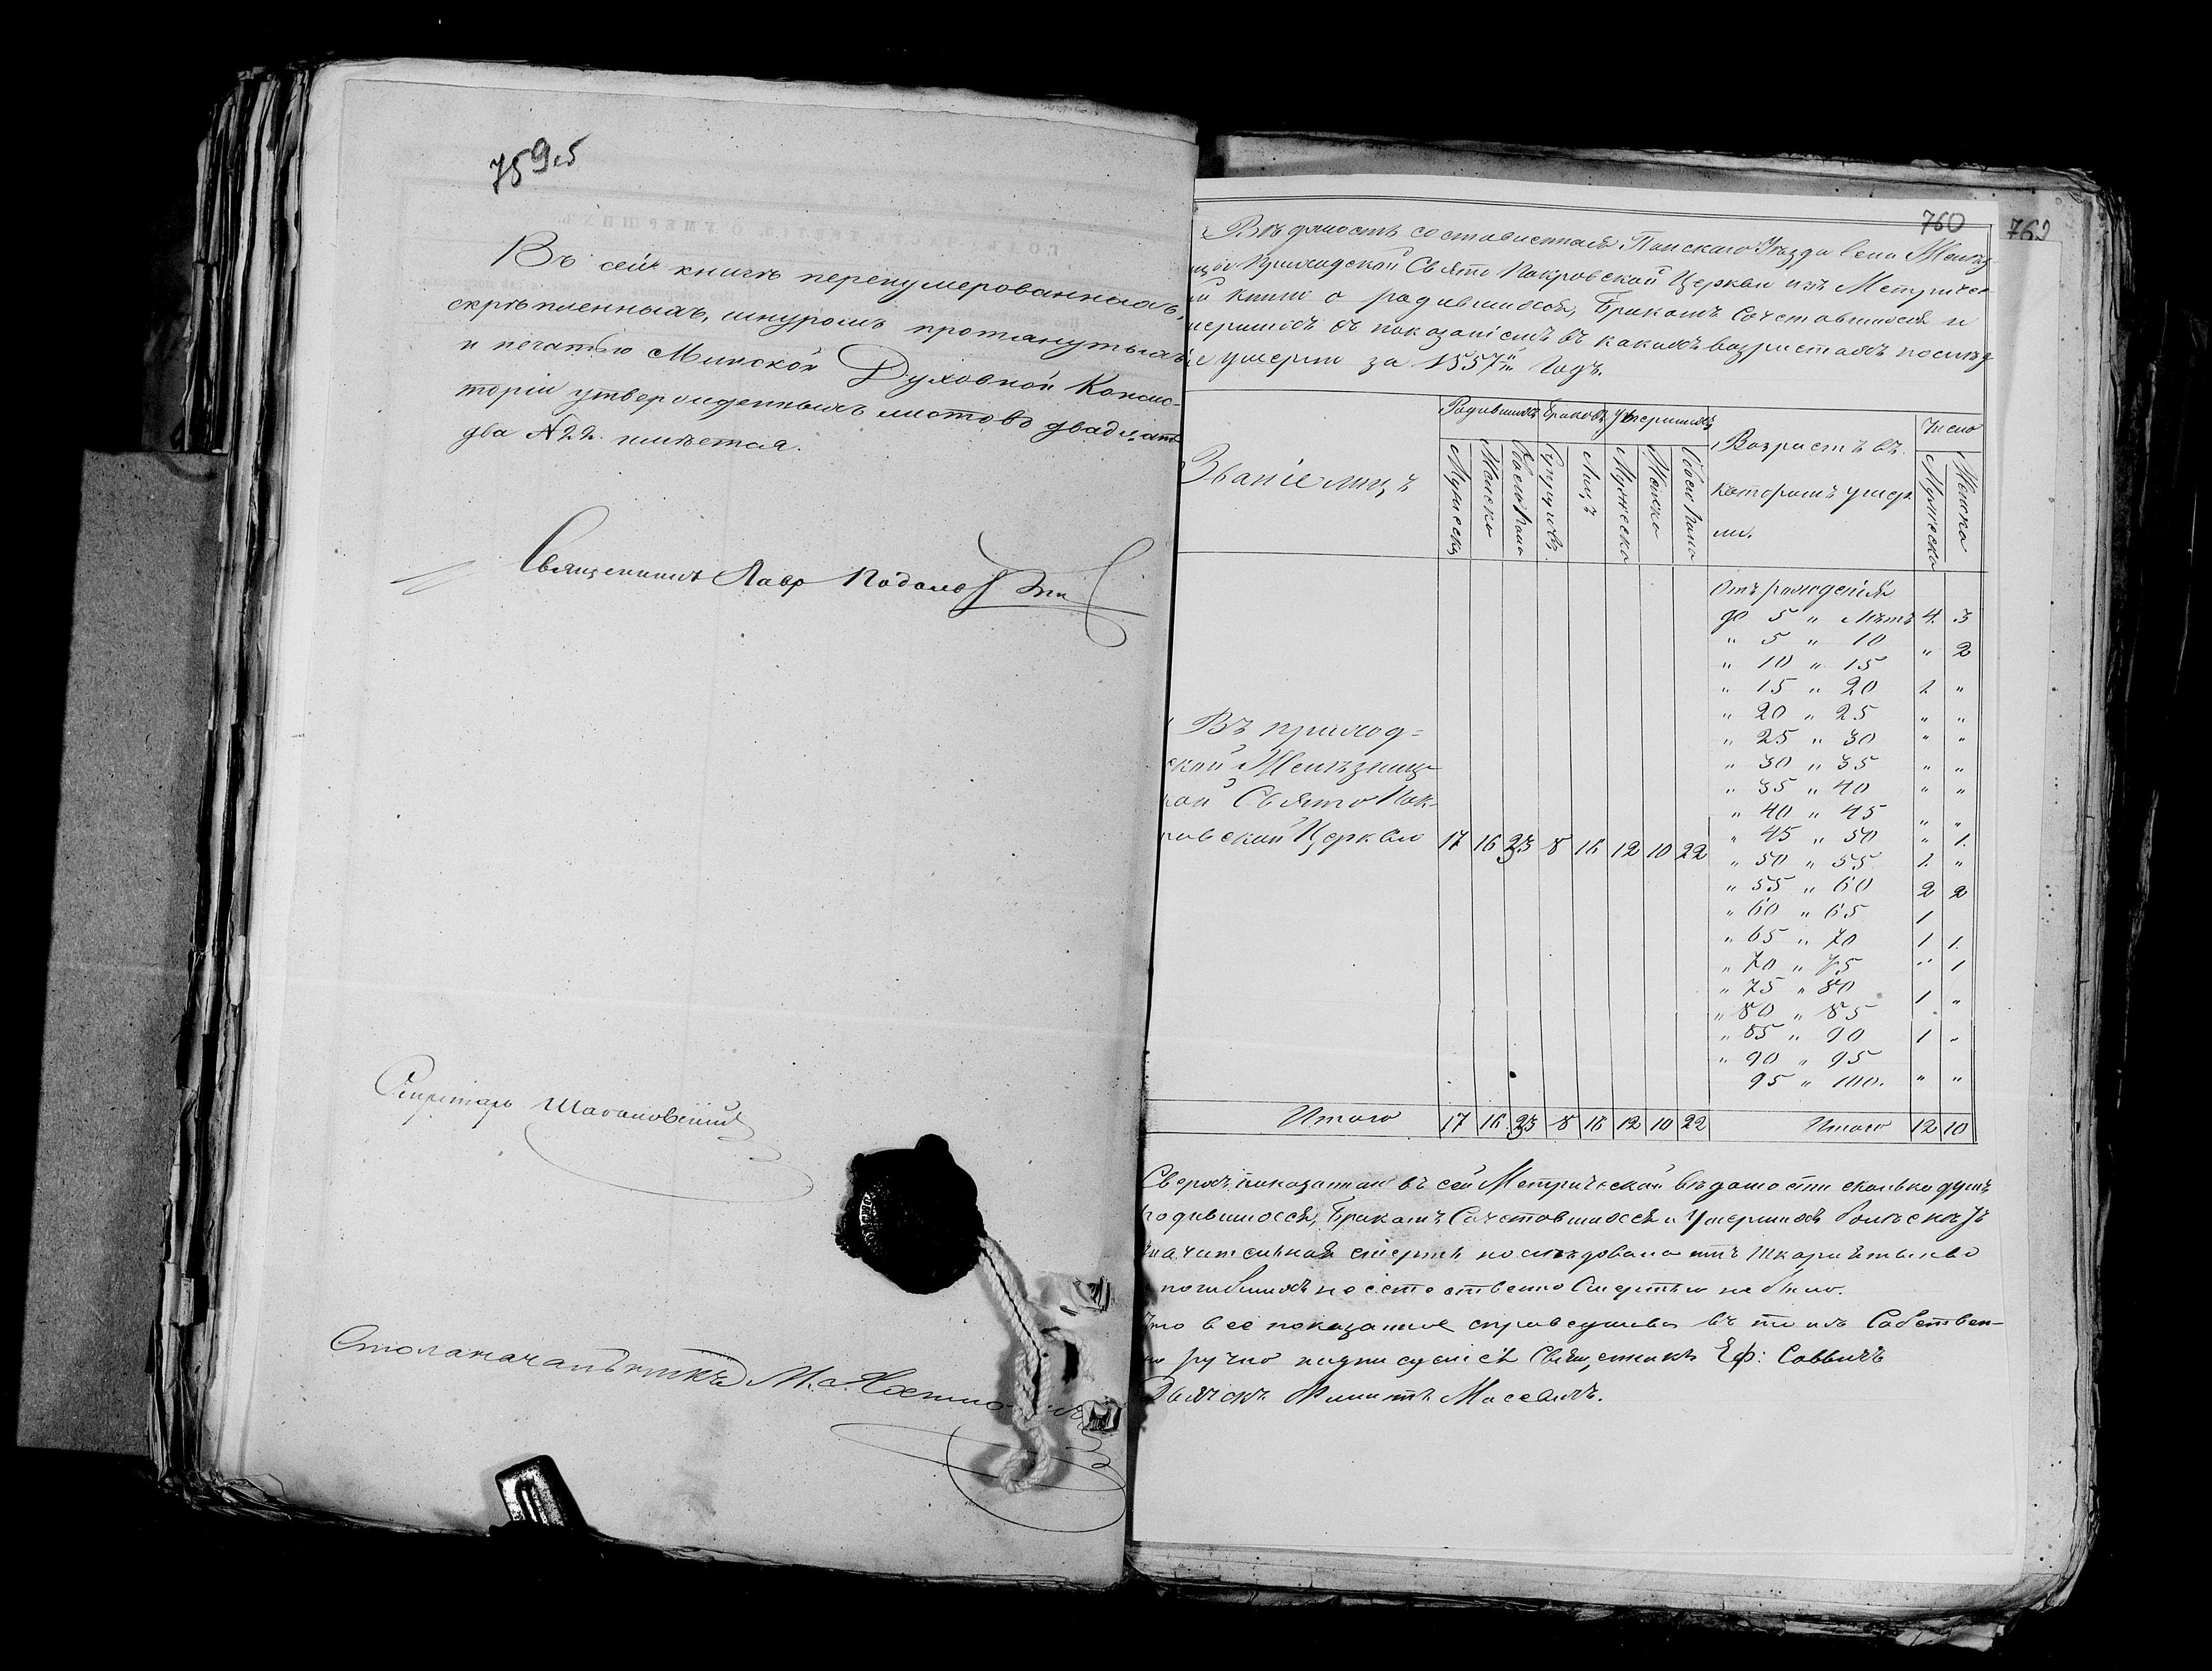 759об
Въ сей книгѣ перенумерованныхъ,
скрѣпленныхъ, шнуромъ протянутыхъ
и печатью Минской Духовной Консис-
торіи утвержденныхъ листовъ двадцать
два № 22. имѣется.
Священникъ Лавр
Секретарь
Столоначальникъ М.
760
762
Вѣдомость составленная Пинскаго Уѣзда села
Приходской Свято Покровской Церкви изъ Метричес
книги о родившихся, Бракомъ Сочетавшихся и
мершихъ съ показаніемъ въ какихъ возрастахъ послѣд
умерли за 1857й Годъ.
Званіе лицъ
Родившихся Браковъ Умершихъ
Возрастъ въ
которомъ умер
ли.
Число
Мужеска Женска Обоего пола Супруговъ Лицъ Мужеска Женска Обоего пола Мужеска Женска
Отъ рожденія
до 5 " лѣтъ 4. 3
" 5 " 10
" 10 " 15 " 2
" 15 " 20 1. "
" 20 " 25 " "
" 25 " 30 " "
" 30 " 35 " "
" 35 " 40 " "
" 40 " 45 " "
" 45 " 50 " 1.
" 50 " 55 1. "
" 55 " 60 2 2
" 60 " 65 1
" 65 " 70 1 1.
" 70 " 75 " 1
" 75 " 80
" 80 " 85 1 "
" 85 " 90 1 "
" 90 " 95
95 " 100. " "
Въ приход=
ской Желѣзниц
кой Свято Пок-
ровской Церкви 17 16 33 8 16 12 10 22
Итого 17 16 33 8 16 12 10 22 Итого 12 10
Сверхъ показанія въ сей Метрической вѣдомости сколько душъ
родившихся, Бракомъ Сочетавшихся и Умершихъ
значительная смерть послѣдовала отъ
погибшихъ не естественно Смертью не было.
Что все показанное справедливо въ томъ Собствен-
но ручно подписуемся Священникъ Еф: Саввичъ